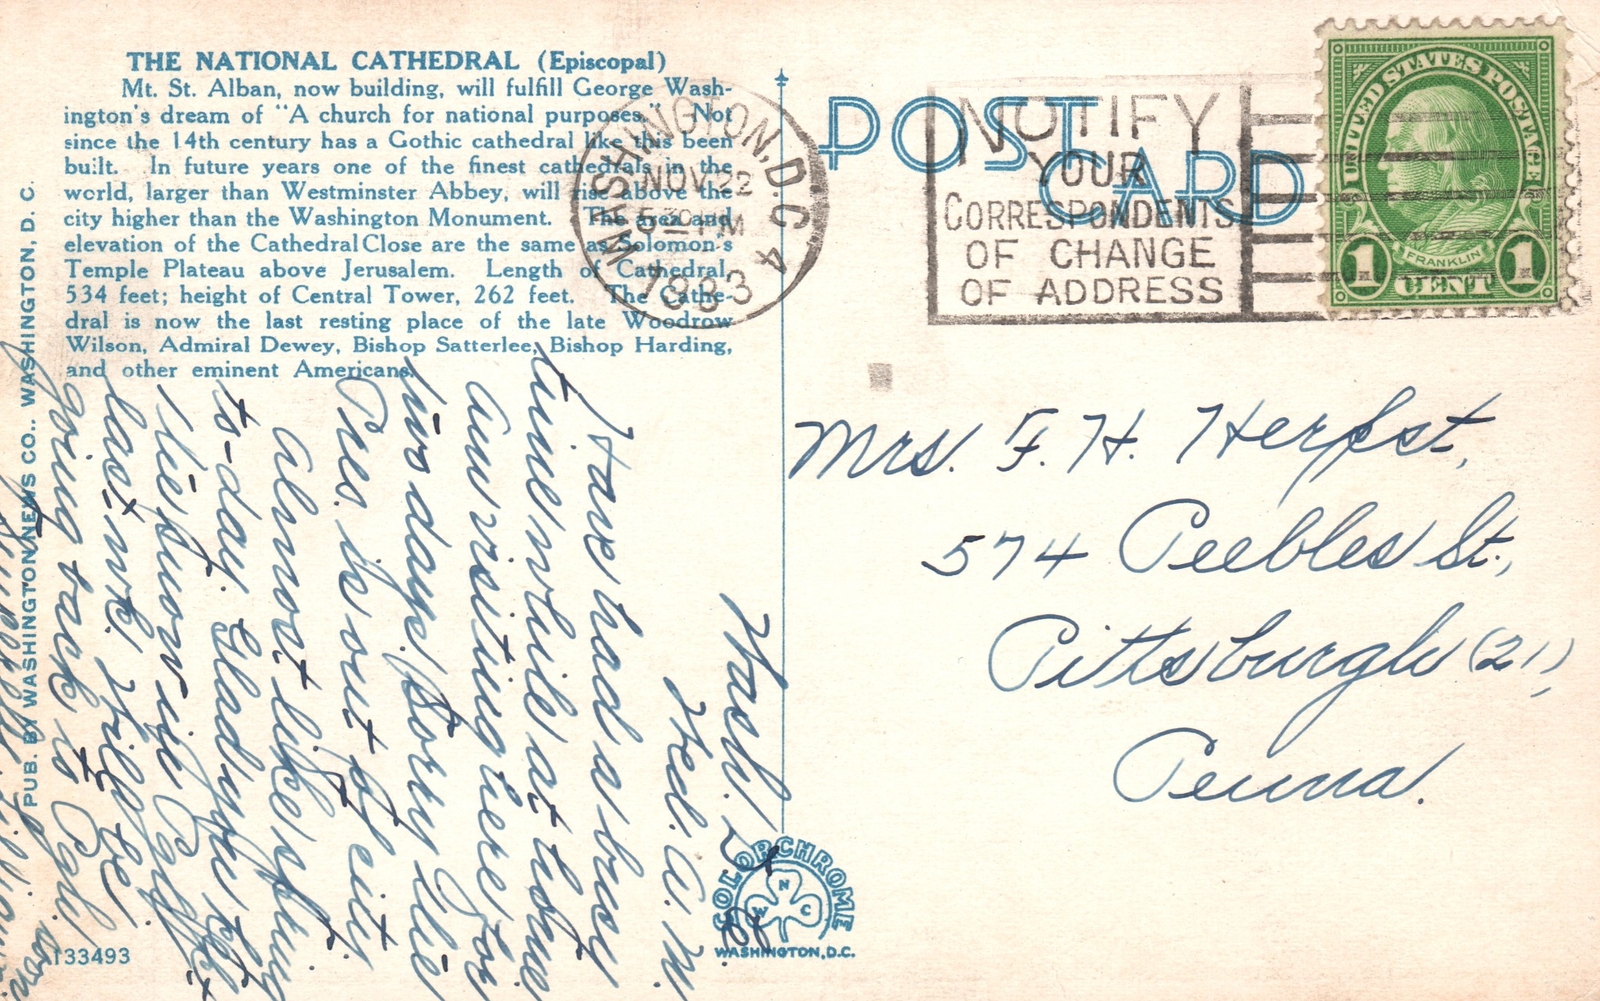 THE NATIONAL CATHEDRAL (Episcopal)
Mt. St. Alban, now building, will fulfill George Wash-
ington's dream of "A church for national purposes." Not
since the 14th century has a Gothic cathedral like this been
built. In future years one of the finest cathedrals in the
world, larger than Westminster Abbey, will rise above the
city higher than the Washington Monument. The area and
elevation of the Cathedral Close are the same as Solomon's
Temple Plateau above Jerusalem. Length of Cathedral,
534 feet; height of Central Tower, 262 feet. The Cathe-
dral is now the last resting place of the late Woodrow
Wilson, Admiral Dewey, Bishop Satterlee, Bishop Harding,
and other eminent Americans.
PUB. BY WASHINGTON NEWS CO., WASHINGTON, D. C.
POST CARD
WASHINGTON, D.C. 4
NOV 22
PM
1933
NOTIFY
YOUR
CORRESPONDENTS
OF CHANGE
OF ADDRESS
UNITED STATES POSTAGE
FRANKLIN
1 CENT 1
Mrs. F. H. Herpst,
574 Peebles St.,
Pittsburgh (21),
Penna.
Wash. D. C.
Wed. A. M.
Have had a busy
time while at home
Am visiting here for
two days. Sorry the
Pres. is out of city
almost like spring
to-day. Glad you had
last wk. Will be
going back to Pgh. soon
COLORCHROME
N
W C
WASHINGTON, D.C.
133493